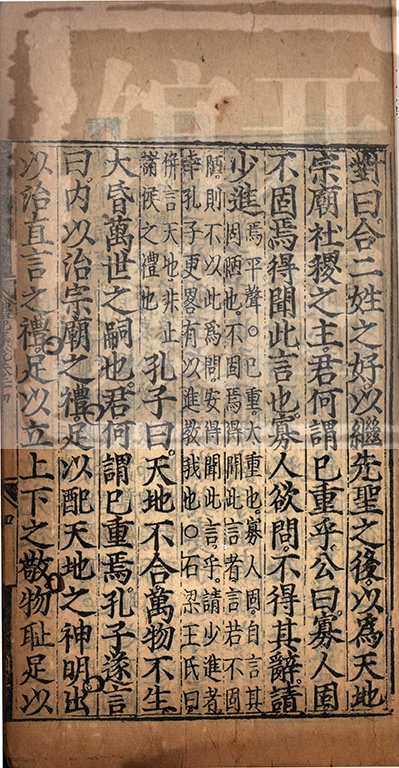 對曰合二姓之好以繼先聖之後以爲天地
宗廟社稷之主君何謂已重乎公曰寡人固
不固焉得聞此言也寡人欲問不得其辭請
少進
焉平聲○已重大重也寡人固自言其
固陋也不固焉得聞此言者言若不固
陋則不以此爲問安得聞此言乎請少進者
幸孔子更畧有以進教我也○石梁王氏曰
併言天地非止
諸侯之禮也
孔子曰天地不合萬物不生
大昏萬世之嗣也君何謂已重焉孔子遂言
曰內以治宗廟之禮足以配天地之神明出
以治直言之禮足以立上下之敬物恥足以